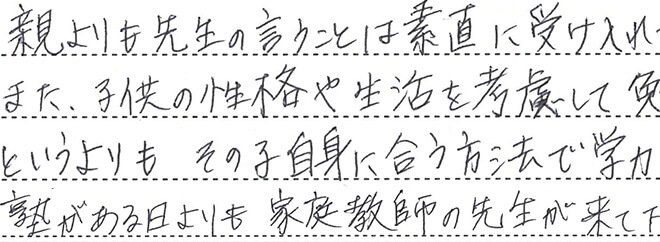 親よりも先生の言うことは素直に受け入れ
また、子供の性格や生活を考慮して
というよりも その子自身に合う方法で学力
塾がある日よりも 家庭教師の先生が来て下